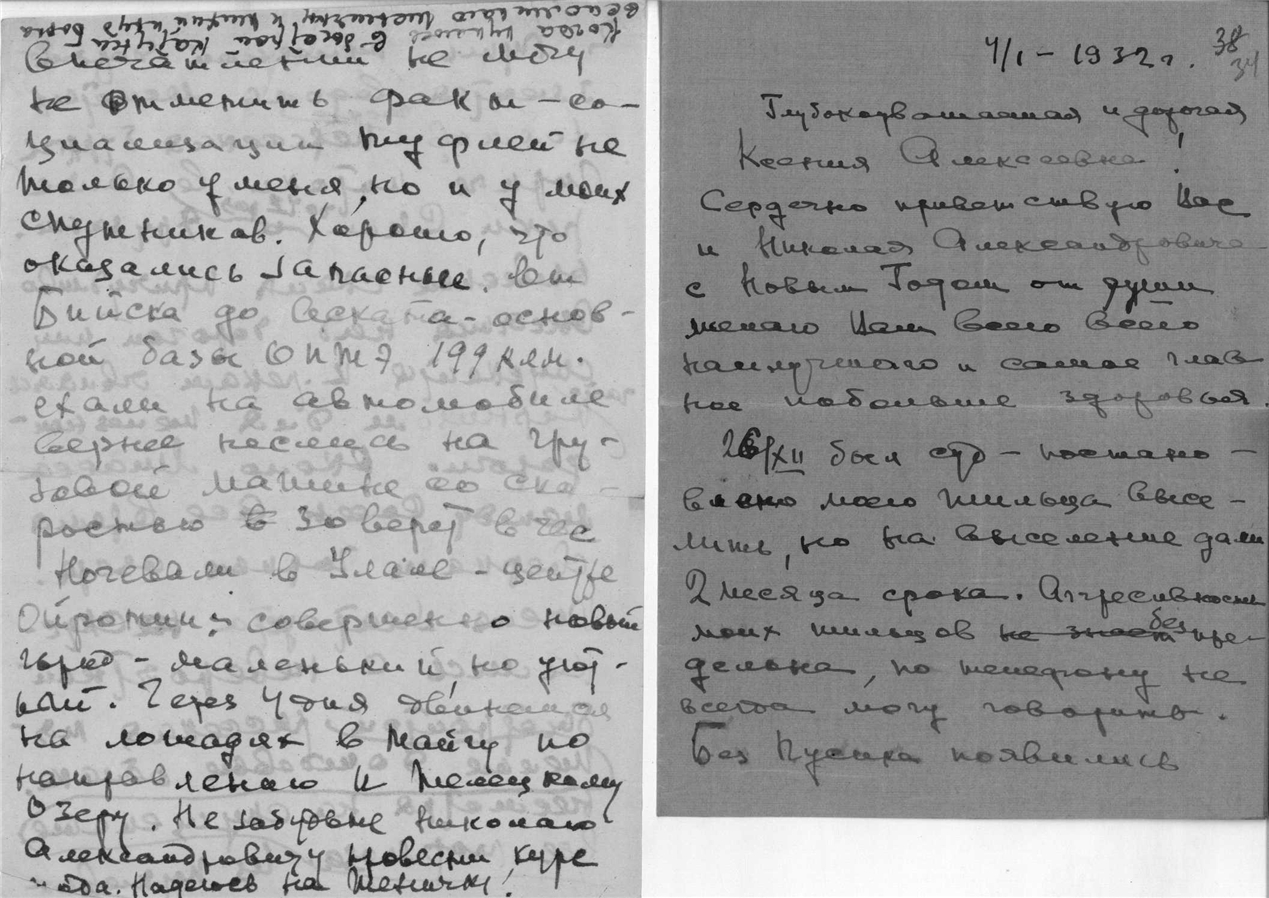 впечатлений не могу
не отметить факт – со-
циализации туфлей не
только у меня, но и у моих
спутников. Хорошо, что
оказались запасные. От
Бийска до Аската – основ-
ной базы ОПТЭ 199 клм.
ехали на автомобиле
вернее неслись на гру-
зовой машине со ско-
ростью в 30 верст в час
Ночевали в Улале – центре
Ойротии; совершенно новый
город – маленький, но уют-
ный. Через 4 дня двинемся
на лошадях в тайгу по
направлению к Телецкому
Озеру. Не забудьте Николаю
Александровичу провести курс
иода. Надеюсь на Женички!
4/I – 1932 г.
38
34
Глубокоуважаемая и дорогая
Ксения Алексеевна!
Сердечно приветствую Вас
и Николая Александровича
с Новым Годом от души
желаю Вам всего всего
наилучшего и самое глав
ное побольше здоровья.
26/XII был суд – постано –
влено моего жильца высе –
лить, но на выселение дали
2 месяца срока. Агрессивность
моих жильцов не знает беспре-
дельна, по телефону не
всегда могу говорить.
Без Пусика появились